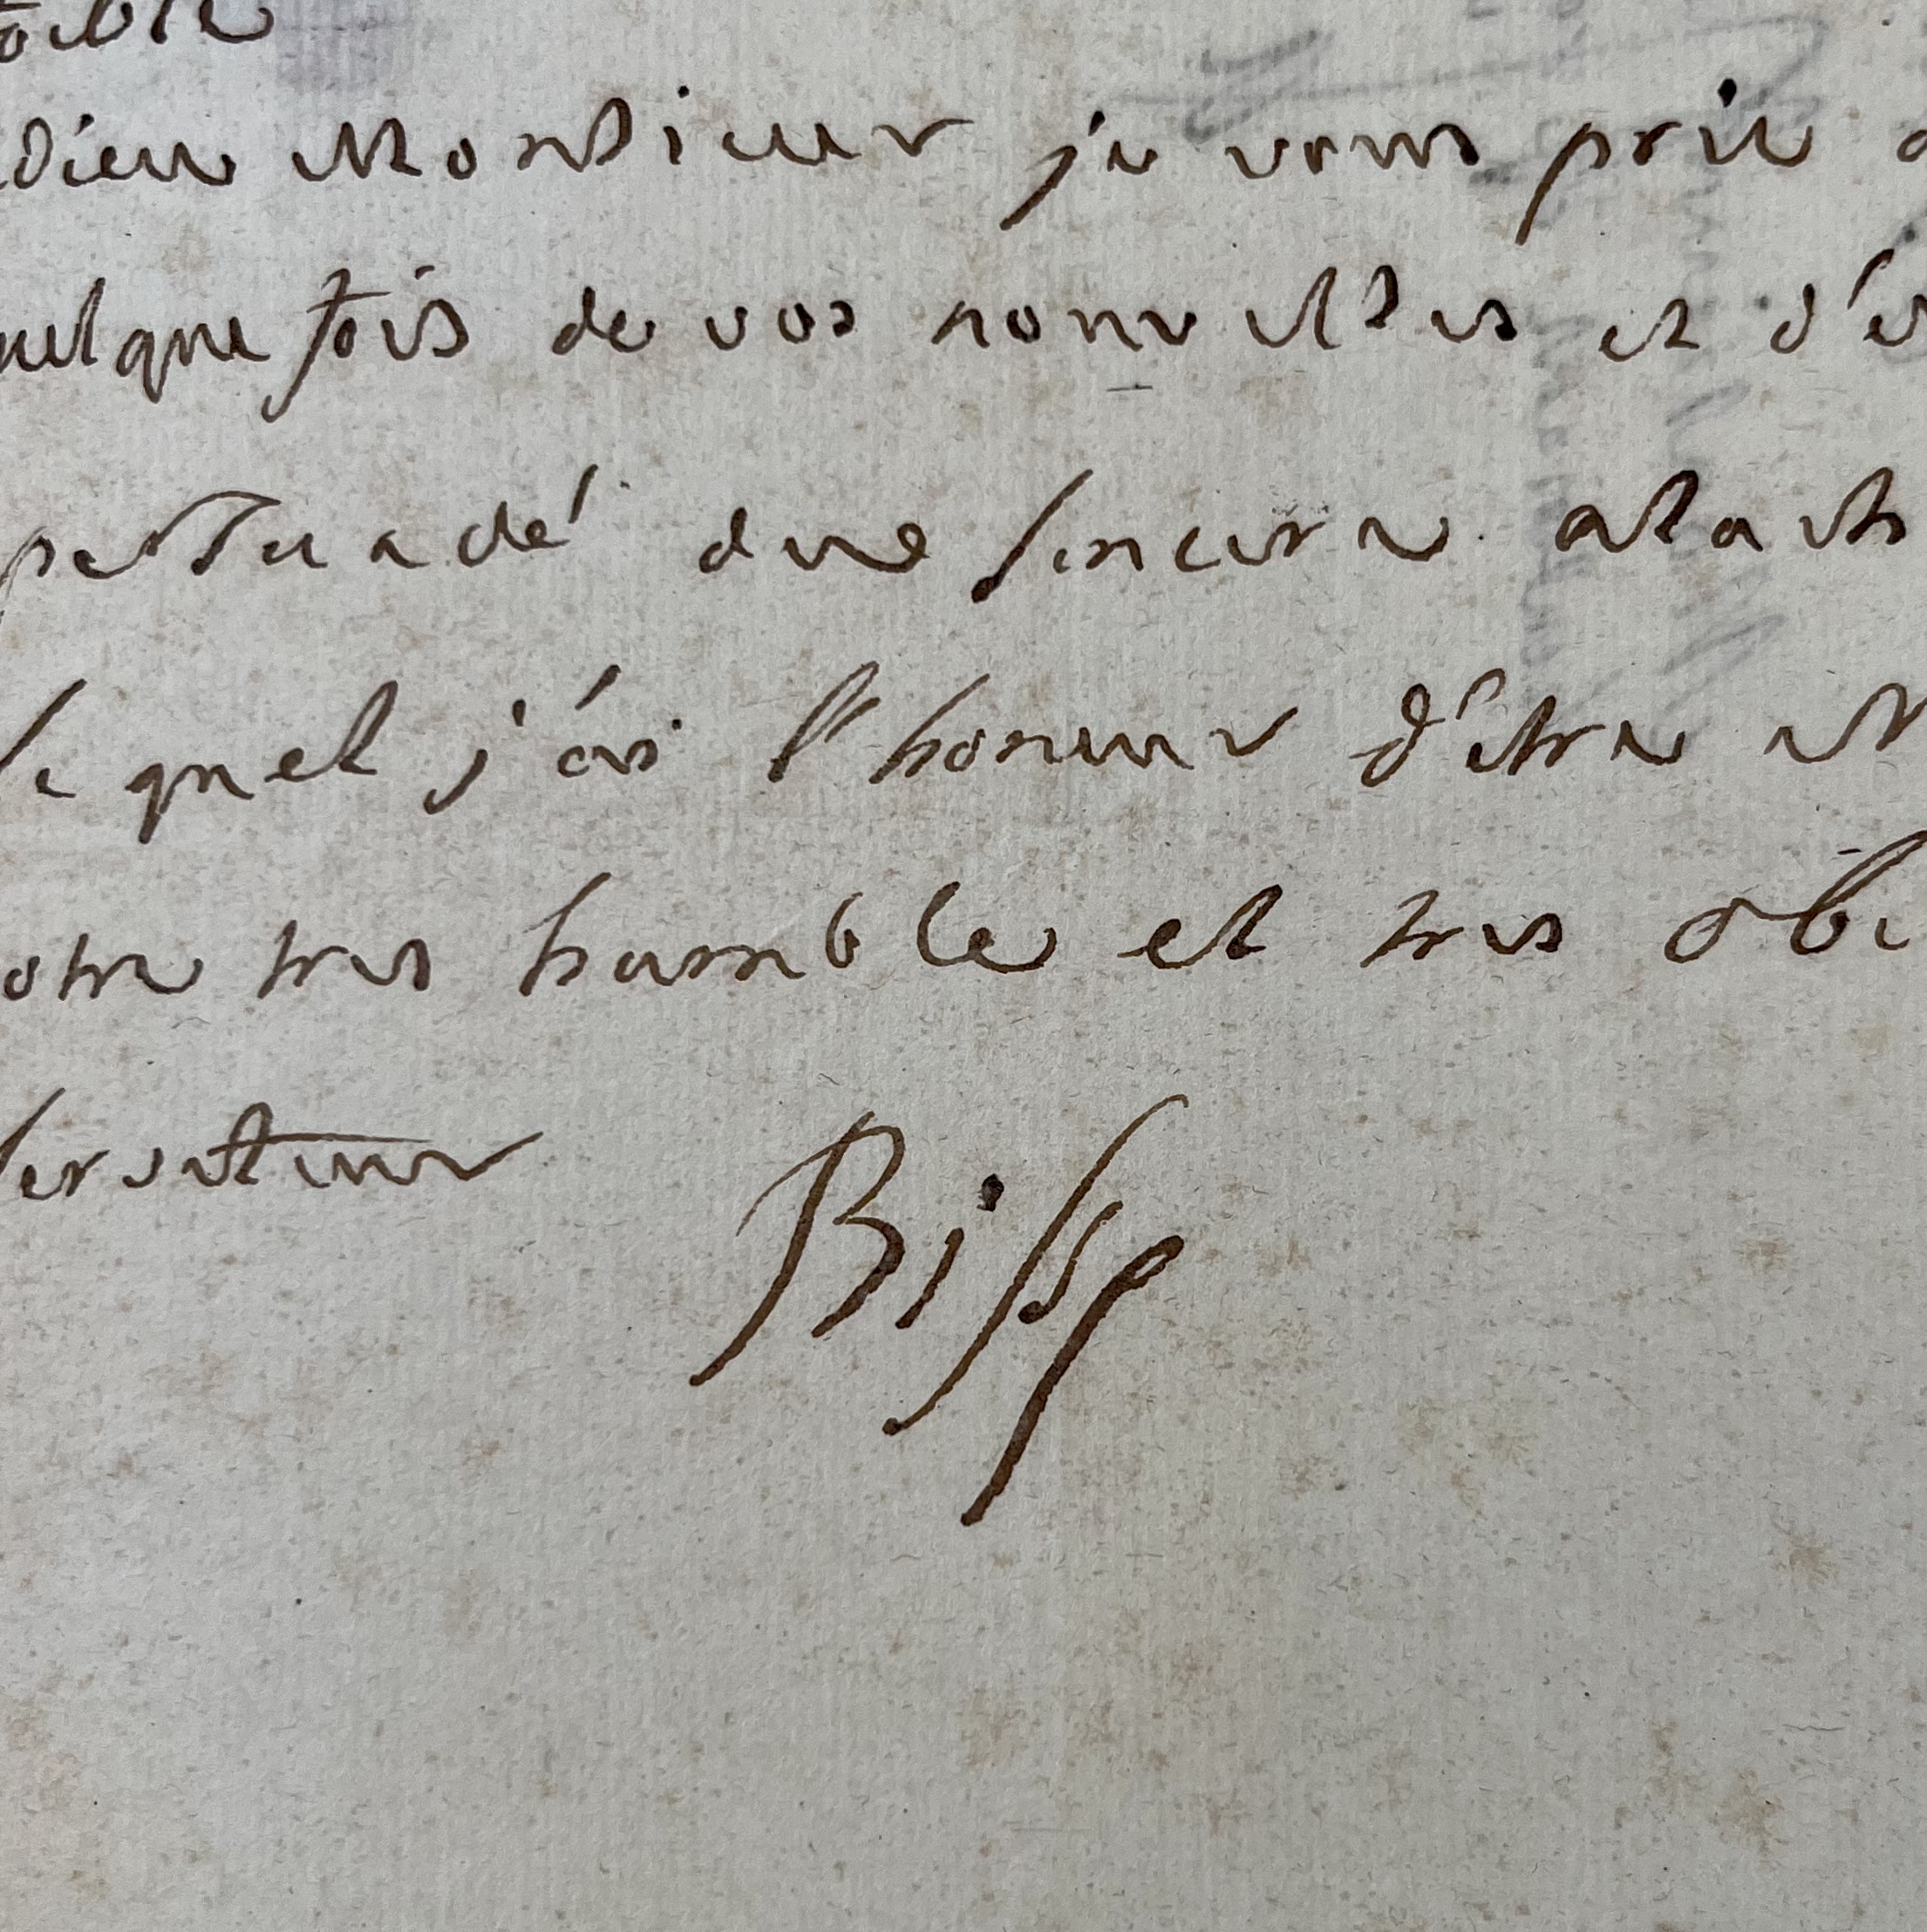 dieu Monsieur je vous prie
uelque fois de vos nouvelles et d'e
persuadé dune sincere atach
lequel j'ai l'honeur d'etre et
otre tres humble et tres obe
serviteur
Bissy